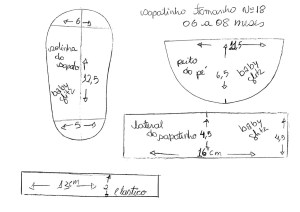 sapatinho tamanho Nº 18
06 a 08 meses
6
solinha
do
sapato
12,5
baby
5
11,5
peito
do pé
6,5
baby
lateral
do sapatinho
4,5
baby
4,5
16 cm
13 cm
elastico